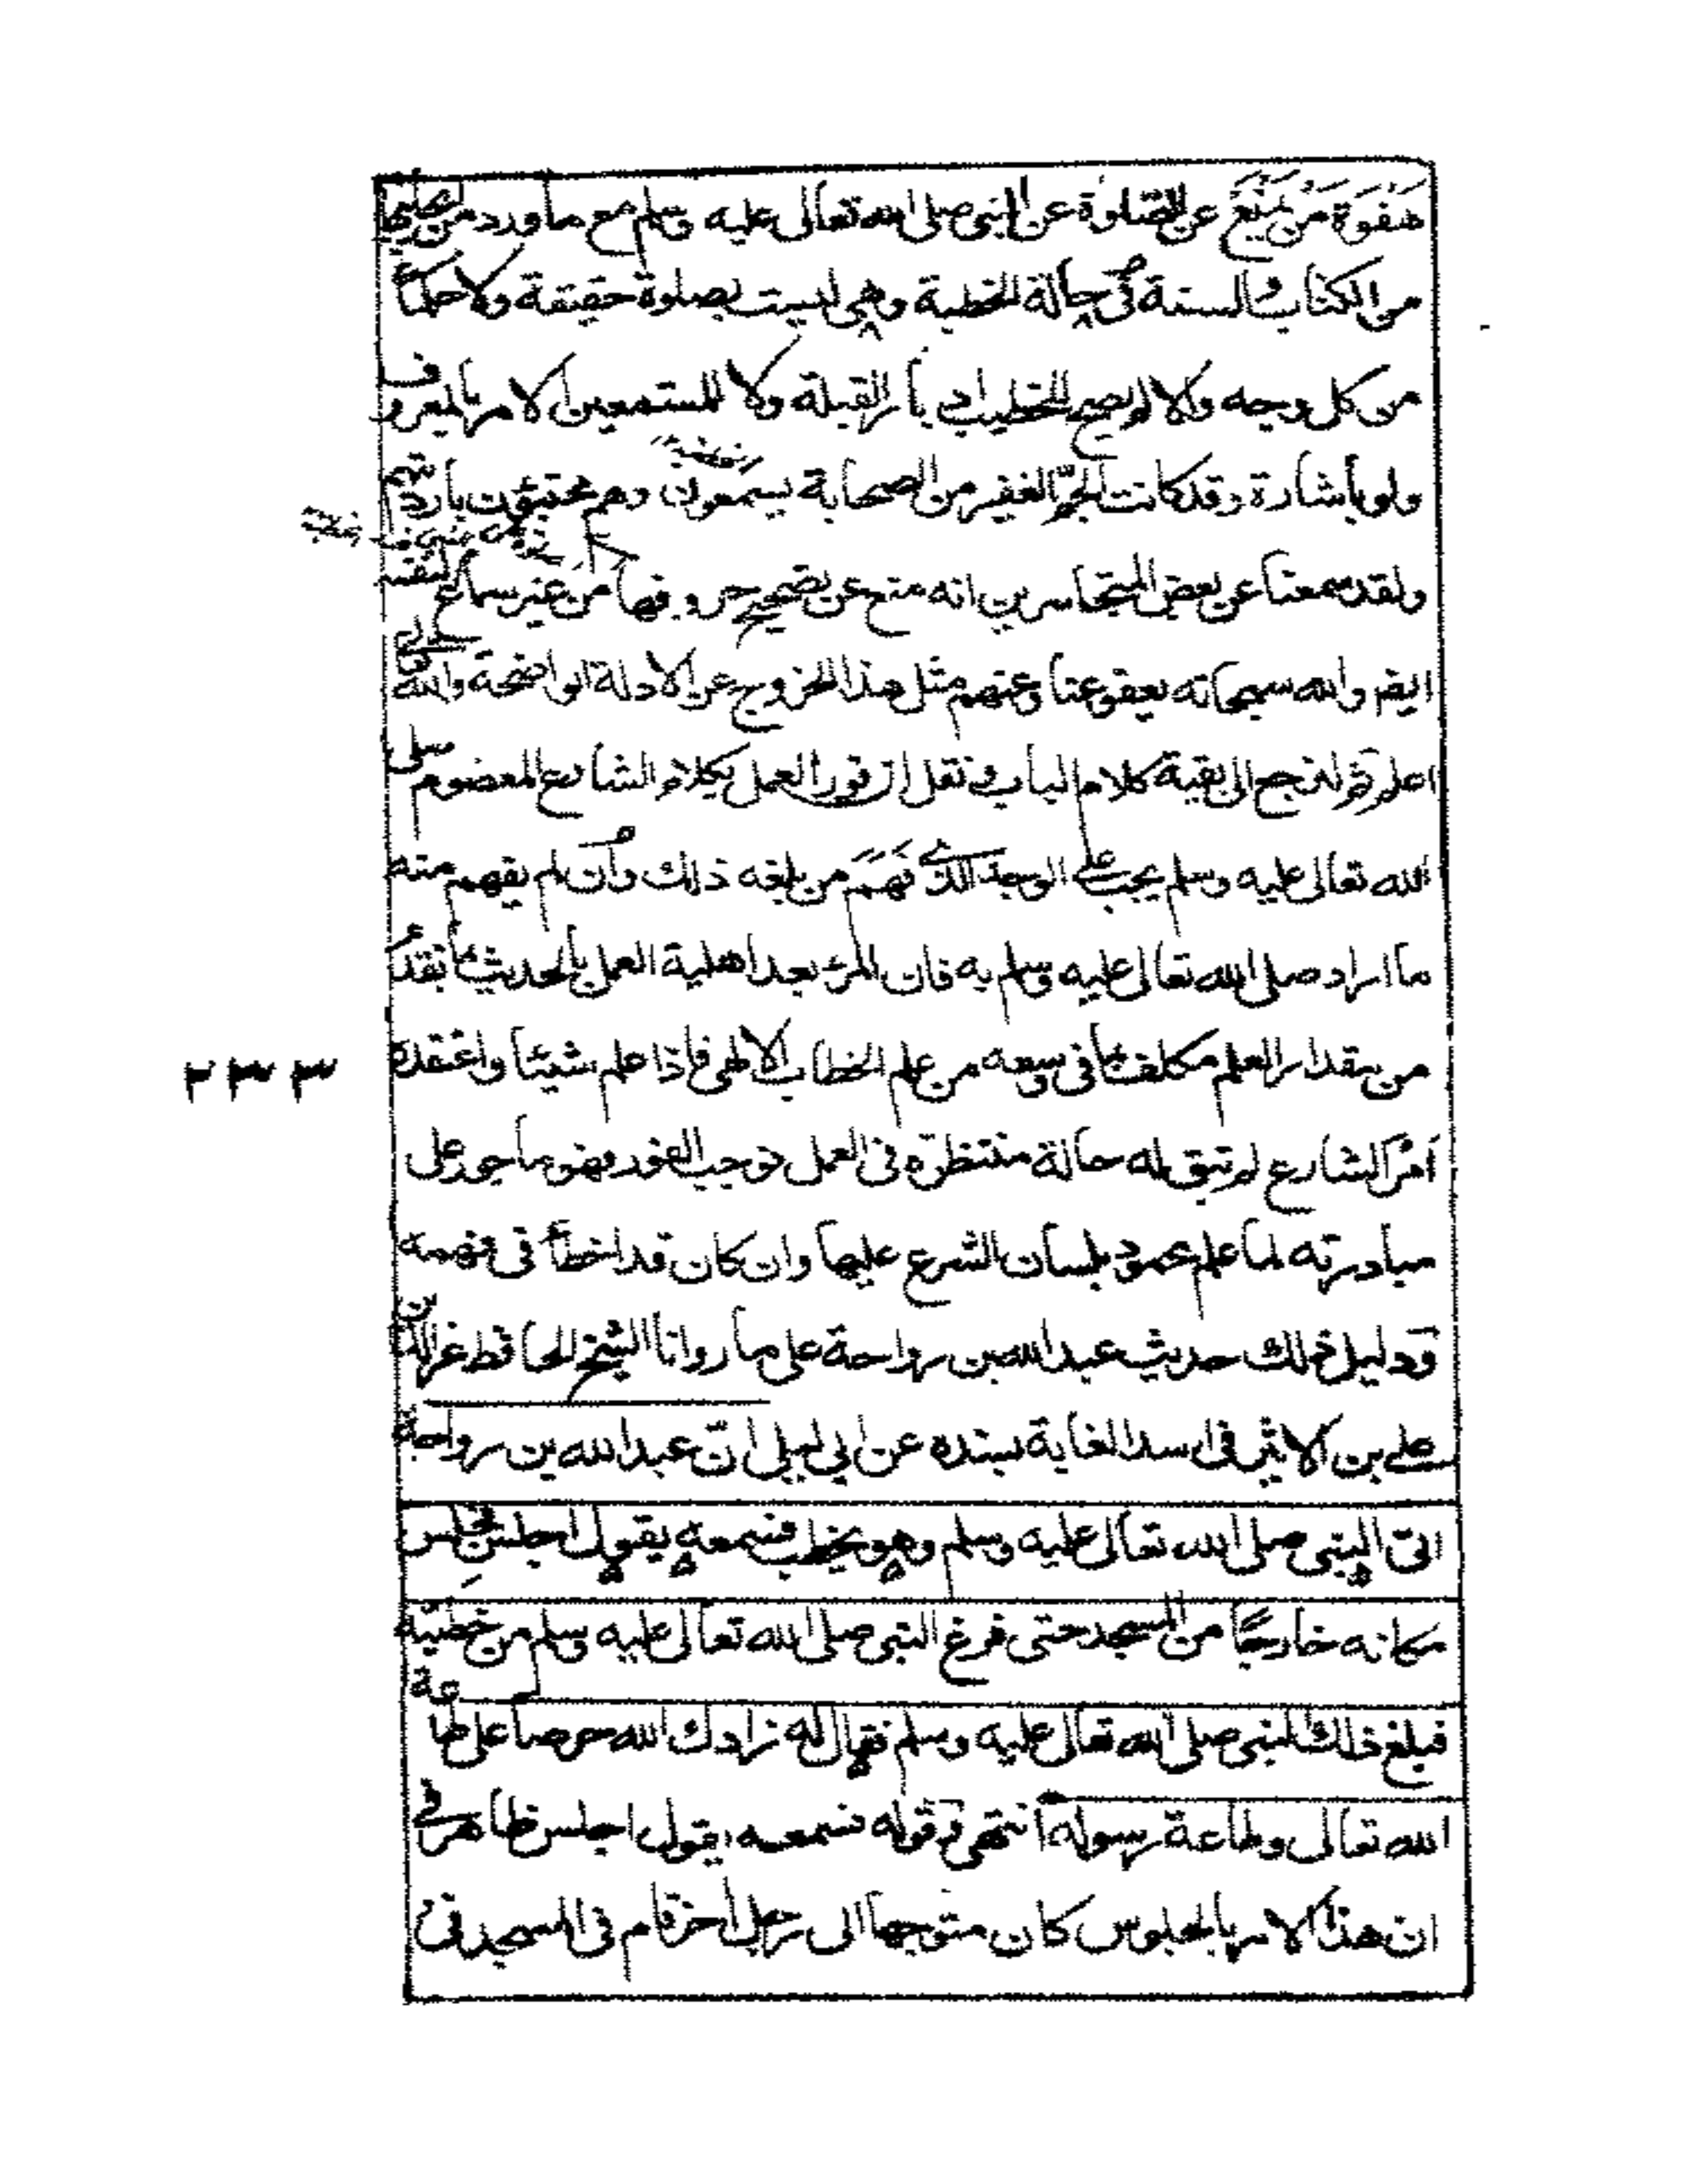 هفوة من يمنع عن الصلوة عن النبى صلى الله تعالى عليه وسلم مع ما ورد من
من الكتاب والسنة فى حالة الخطبة وهى ليست بصلوة حقيقة ولا حكما
من كل وجه والا لم يصح للخطيب القبلة ولا للمستمعين الامر بالمعروف
ولو بأشارة وقد كانت الجم الغفير من الصحابة يسمعون وهم محتبئون بارديتهم
ولقد سمعنا عن بعض المتجاسرين انه منع عن تصحيح حروفها من غير سماع لنفسه
ايضا والله سبحانه يعفو عنا وعنهم مثل هذا الخروج عن الادلة الواضحة والله تعالى
اعلم ثم لنرجع الى بقية كلام الباب ونقل ان فور العمل بكلام الشارع المعصوم صلى
الله تعالى عليه وسلم يجب على الوجه الذى فهم من بلغه ذلك وان لم يفهم منه
ما اراد صلى الله تعالى عليه وسلم به فان المرء بعد اهلية العمل بالحديث بقدر
من مقدار العلم مكلف بما فى وسعه من علم الخطاب الالهى فاذا علم شيئا واعتقده
امر الشارع لم تبق له حالة منتظرة فى العمل فوجب الفور فهو ماجور على
مبادرته لما علم محمود بلسان الشرع عليها وان كان قد اخطأ فى فهمه
ودليل ذلك حديث عبد الله بن رواحة على ما روانا الشيخ الحافظ عز الدين
على بن الاثير فى اسد الغابة بسنده عن ابى ليلى ان عبد الله بن رواحة
اتى النبى صلى الله تعالى عليه وسلم وهو يخطب فسمعه يقول اجلس فجلس
مكانه خارجا من المسجد حتى فرغ النبى صلى الله تعالى عليه وسلم من خطبته
فبلغ ذلك النبى صلى الله تعالى عليه وسلم فقال له زادك الله حرصا على طاعة
الله تعالى وطاعة رسوله انتهى وقوله فسمعه يقول اجلس ظاهر فى
ان هذا الامر بالجلوس كان متوجها الى رجل اخر قام فى المسجد فى
٢٣٣